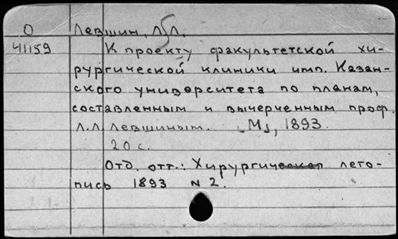 О Левшин, Л.Л.
41159 К проекту факультетской хи-
рургической клиники имп. Казан-
ского университета по планам,
составленным и вычерченным проф.
Л.Л. Левшиным. М., 1893.
20 с.
Отд. отт.: Хирургическая лето-
пись 1893 N 2.